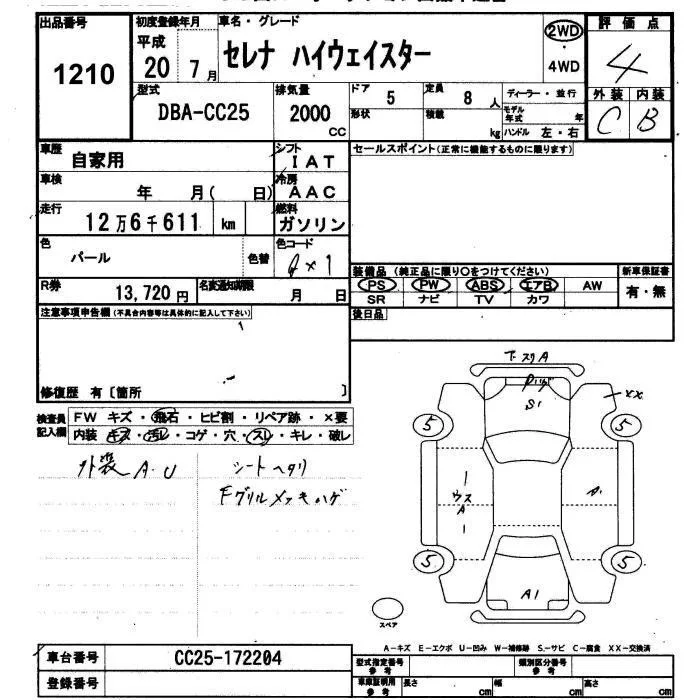 出品番号
1210
初度登録年月
平成
20 7月
車名・グレード
セレナ ハイウェイスター
2WD
4WD
評価点
4
外装 内装
C B
型式
DBA-CC25
排気量
2000
CC
ドア
5
定員
8 人
形状
積載
kg
ディーラー・並行
モデル年式 年
ハンドル 左・右
車歴
自家用
シフト
IAT
車検
年 月( 日)
冷房
AAC
走行
12万6千611 km
燃料
ガソリン
色
パール
色替
色コード
Qx1
R券
13,720円
名変通知期限
月 日
セールスポイント(正常に機能するものに限ります)
装備品(純正品に限り○をつけてください)
PS PW ABS エアB AW
SR ナビ TV カワ
新車保証書
有・無
後日品
注意事項申告欄(不具合内容等は具体的に記入して下さい)
修復歴 有〔箇所 〕
検査員記入欄
FW キズ・飛石・ヒビ割・リペア跡・×要
内装 キズ・汚レ・コゲ・穴・スレ・キレ・破レ
外装 A.U
シートヘタリ
Fグリルメッキハゲ
下スリA
S1
XX
5
5
ウス
A
A
5
5
A1
スペア
A-キズ E-エクボ U-凹み W-補修跡 S-サビ C-腐食 XX-交換済
車台番号
CC25-172204
登録番号
型式指定番号
参考
類別区分番号
参考
車庫証明用
参考
長さ cm
幅 cm
高さ cm